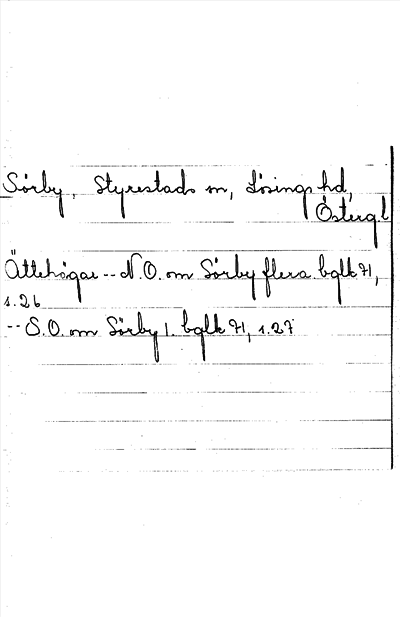 Sörby, Styrestads sn, Lösings hd,
Östergl
Ättehögar -- N.O. om Sörby flera. bglk 71,
s. 26
-- S.O. om Sörby 1. bglk 71, s. 27